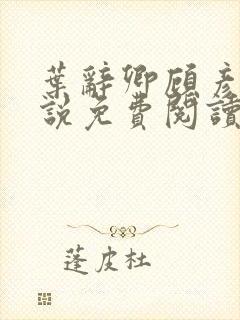 葉辭卿顧彥
說免費閱讀
蓬皮杜